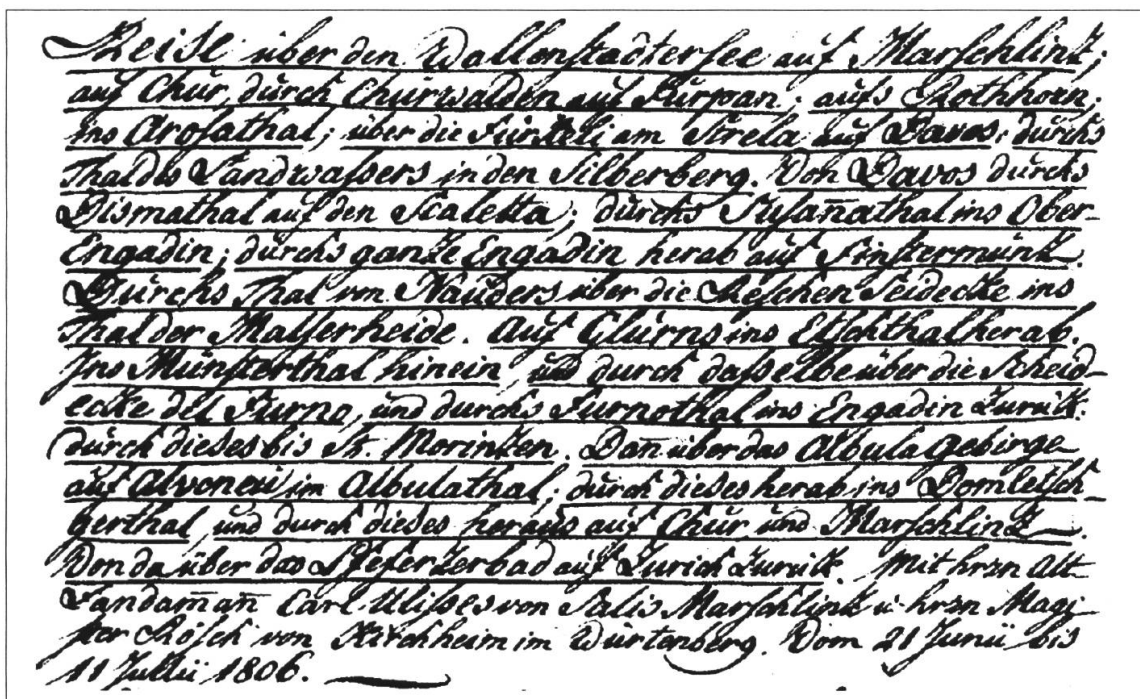 Reise über den Wallenstadtersee auf Marschlinz;
auf Chur, durch Churwalden auf Parpan; aufs Rothhorn;
ins Arosathal; über die Fürkeli am Strela auf Davos; durchs
Thal des Landwassers in den Silberberg. Von Davos durchs
Dismathal auf den Scaletta; durchs Susañathal ins Ober-
Engadin; durchs ganze Engadin herab auf Finstermünz.
Durchs Thal von Nauders über die Reschen Seidecke ins
Thal der Malserheide. Auf Glurns ins Etschthal herab.
Ins Münsterthal hinein, und durch dasselbe über die Scheid-
ecke del Furno, und durchs Furnothal ins Engadin zurük.
durch dieses bis St. Morinzen. Dañ über das Albula gebirge
auf Alveneü im Albulathal; durch dieses herab ins Domletsch-
gerthal, und durch dieses heraus auf Chur und Marschlinz.
Von da über das Pfeferzerbad auf Zürich zurük. Mit hrzn Alt-
Landam̄añ Carl Ulisses von Salis Marschlinz u. hrzn Magi-
ster Rösch von Kirchheim im Würtenberg. Vom 21 Junii bis
11 Julii 1806.